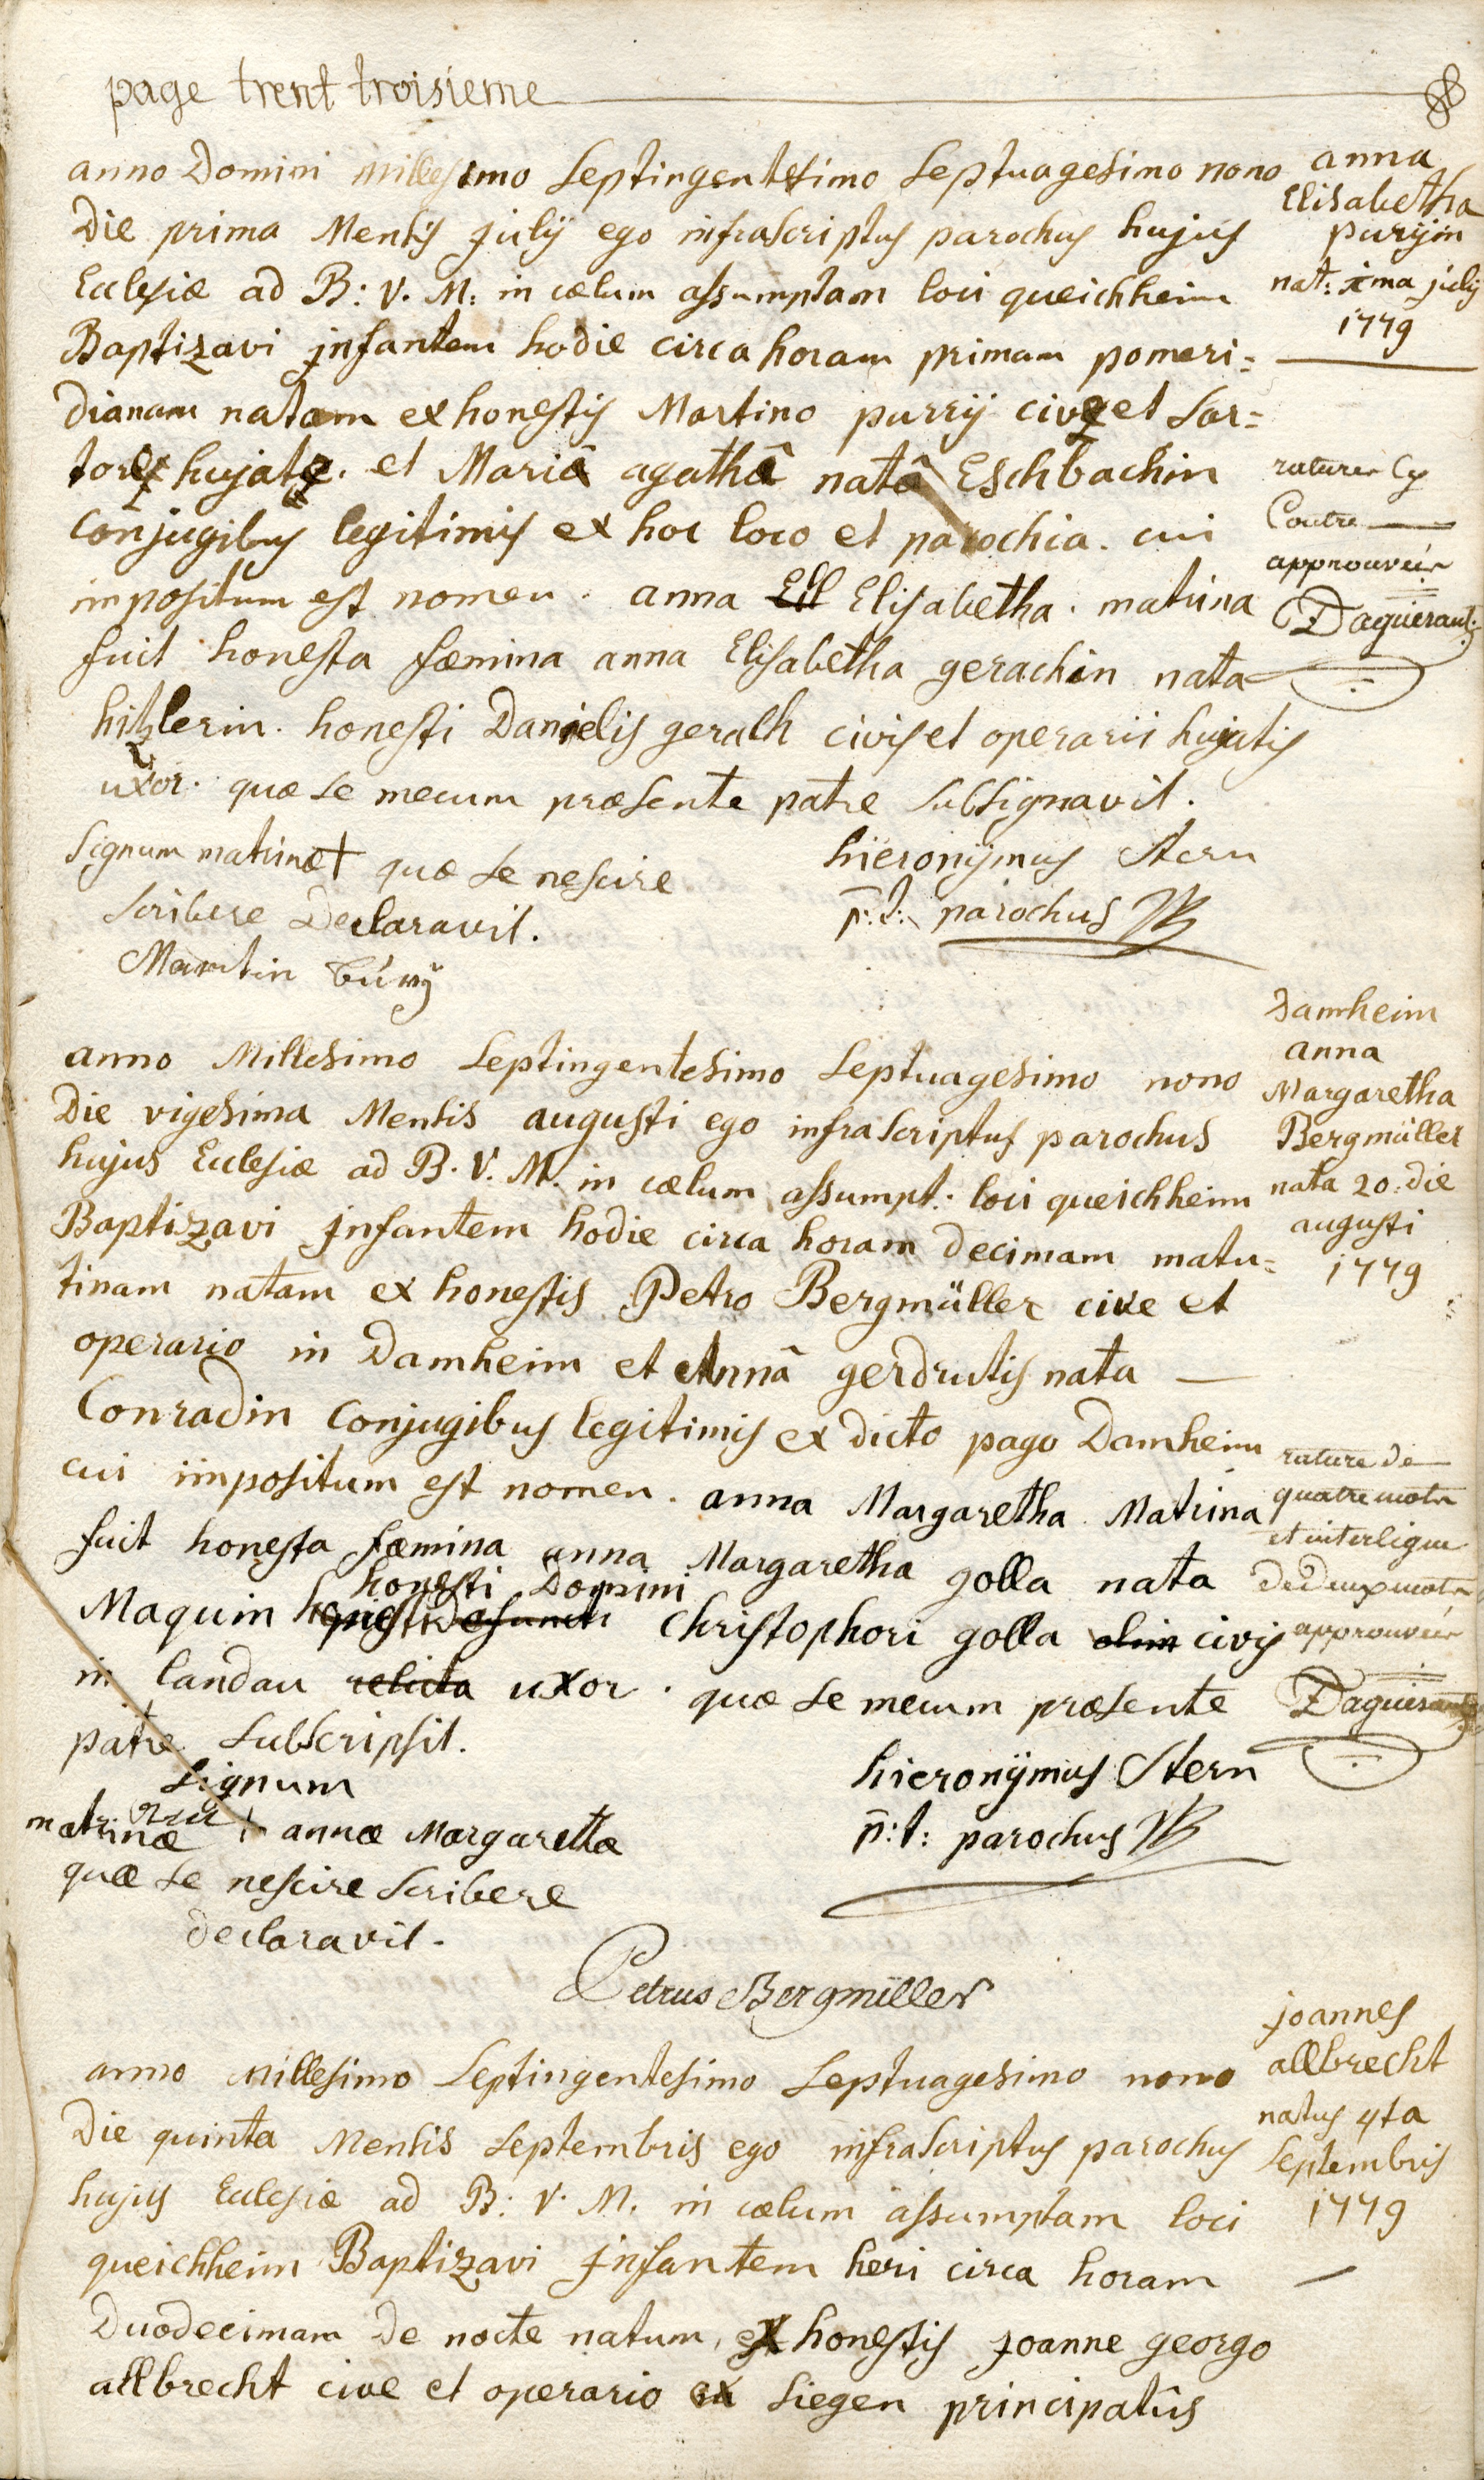 page trent troisieme
anno Domini millesimo Septingentesimo Septuagesimo nono
Die prima Mensis julÿ ego infrascriptus parochus hujus
Ecclesiæ ad B: V. M: in cælum assumptam loci queichheim
Baptizavi jnfantem hodie circa horam primam pomeri=
dianam natam ex honestis Martino purrÿ cive et Sar=
tore hujate. et Mariâ agathâ natâ Eschbachin
Conjugibus legitimis ex hoc loco et parochia. cui
impositum est nomen. anna Ell Elisabetha. matrina
fuit honesta fæmina anna Elisabetha gerachin nata
hitzlerin. honesti Danielis gerach civis et operarii hujatis
uxor. quæ se mecum præsente patre subsignavit.
Signum matrinæ + quæ se nescire
scribere Declaravit.
Martin
hieronÿmus Stern
p:t: parochus
anna
Elisabetha
purÿin
nat: ima julÿ
1779
Contre
approuvéér
Daguerant
anno Millesimo Septingentesimo Septuagesimo nono
Die vigesima Mensis augusti ego infrascriptus parochus
hujus Ecclesiæ ad B. V. M. in cælum assumpt. loci queichheim
Baptizavi jnfantem hodie circa horam Decimam matu=
tinam natam ex honestis Petro Bergmüller cive et
operario in Damheim et Annâ gerdrutis nata —
Conradin Conjugibus legitimis ex dicto pago Damheim
cui impositum est nomen. anna Margaretha. Matrina
fuit honesta fæmina anna Margaretha golla nata
honesti Domini
Maquin honesti defuncti Christophori golla olim civis
in landau relicta uxor. quæ se mecum præsente
patre subscripsit.
Signum
matrinæ + annæ Margarettæ
quæ se nescire scribere
declaravit.
hieronÿmus Stern
p:t: parochus
Petrus Bergmüller
Damheim
anna
Margaretha
Bergmüller
nata 20: die
augusti
1779
rature de
quatre mots
et interligne
de deux mots
approuvéér
Daguerant
anno Millesimo Septingentesimo Septuagesimo nono
Die quinta Mensis Septembris ego infrascriptus parochus
hujus Ecclesiæ ad B: V. M. in cælum assumptam loci
queichheim Baptizavi jnfantem heri circa horam
Duodecimam de nocte natum, ex honestis joanne georgo
allbrecht cive et operario ex Siegen principatûs
joannes
allbrecht
natus 4ta
Septembris
1779